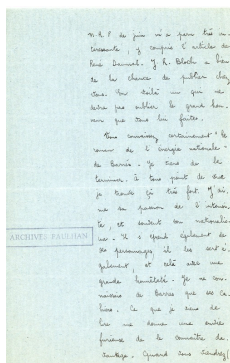 N.R.F. de juin m'a paru très in-
téressante, y compris l'article de
René Daumal. J. R. Bloch a bien
de la chance de publier chez
vous. En voilà un qui ne
devra pas oublier le grand hon-
neur que vous lui faites.
Vous connaissez certainement "Le
roman de l'énergie nationale"
de Barrès. Je viens de le
terminer. À tous point de vue
je trouve ça très fort. J'ai-
me sa passion de
et surtout son nationalis-
me. Il épouse également
ses personnages, il les sert é-
galement, et cela avec une
grande honnêteté. Je ne con-
naissais de Barrès que ses Ca-
hiers. Ce que je viens de
lire me donne une envie
furieuse de le connaître da-
vantage. Quand vous viendrez
ARCHIVES PAULHAN